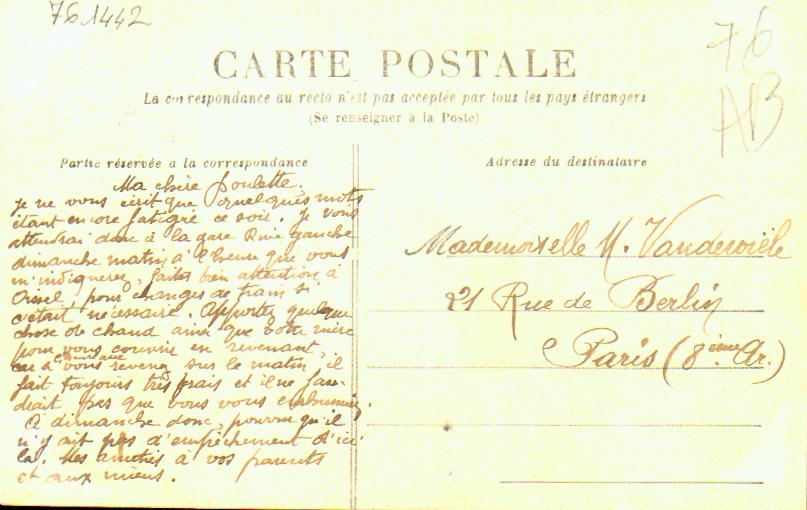 76 1442
76
AB
CARTE POSTALE
La correspondance au recto n'est pas acceptée par tous les pays étrangers
(Se renseigner à la Poste)
Partie réservée a la correspondance
Adresse du destinataire
Ma chère poulette,
je ne vous écrit que quelques mots
étant encore fatigué ce soir. Je vous
attendrai donc à la gare Rive gauche
dimanche matin à l'heure que vous
m'indiquerez, faites bien attention à
Oissel, pour changer de train si
c'était nécessaire. Apportez quelque
chose de chaud ainsi que votre mère
pour vous couvrir en revenant,
car si vous revenez sur le matin, il
fait toujours très frais et il ne fau-
drait pas que vous vous enrhumiez.
A dimanche donc, pourvu qu'il
n'y ait pas d'empêchement d'ici
là. Mes amitiés à vos parents
et aux miens.
Mademoiselle M. Vanderviële
21 Rue de Berlin
Paris (8ième Ar.)